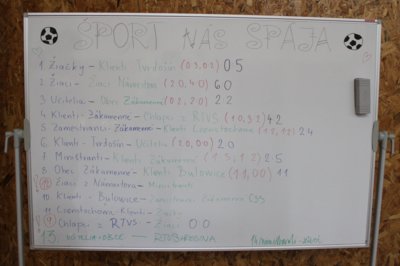 ŠPORT NÁS SPÁJA
1 Žiačky - Klienti Tvrdošín (03,02) 05
2 Žiaci - Žiaci Námestova (20,40) 60
3 Učitelia - Obec Zákamenné (02,20) 22
4 Klienti - Zákamenné - Chlapi z RTVS (10,32) 42
5 Zamestnanci - Zákamenné - Klienti Czenstochowa (12,12) 24
6 Klienti - Tvrdošín - Učitelia (20,00) 20
7 Miništranti - Klienti Zákamenné (15,12) 25
8 Obec Zákamenné - Klienti Bytowice (11,00) 11
Žiaci z Námestova - Miništranti
10 Klienti - Bytowice - Zamestnanci Zákamenné CSS
11 Czenstochowa - Klienti - Žiačky
Chlapi z RTVS - Žiaci 00
13. UČITELIA-OBEC — RTVS
14